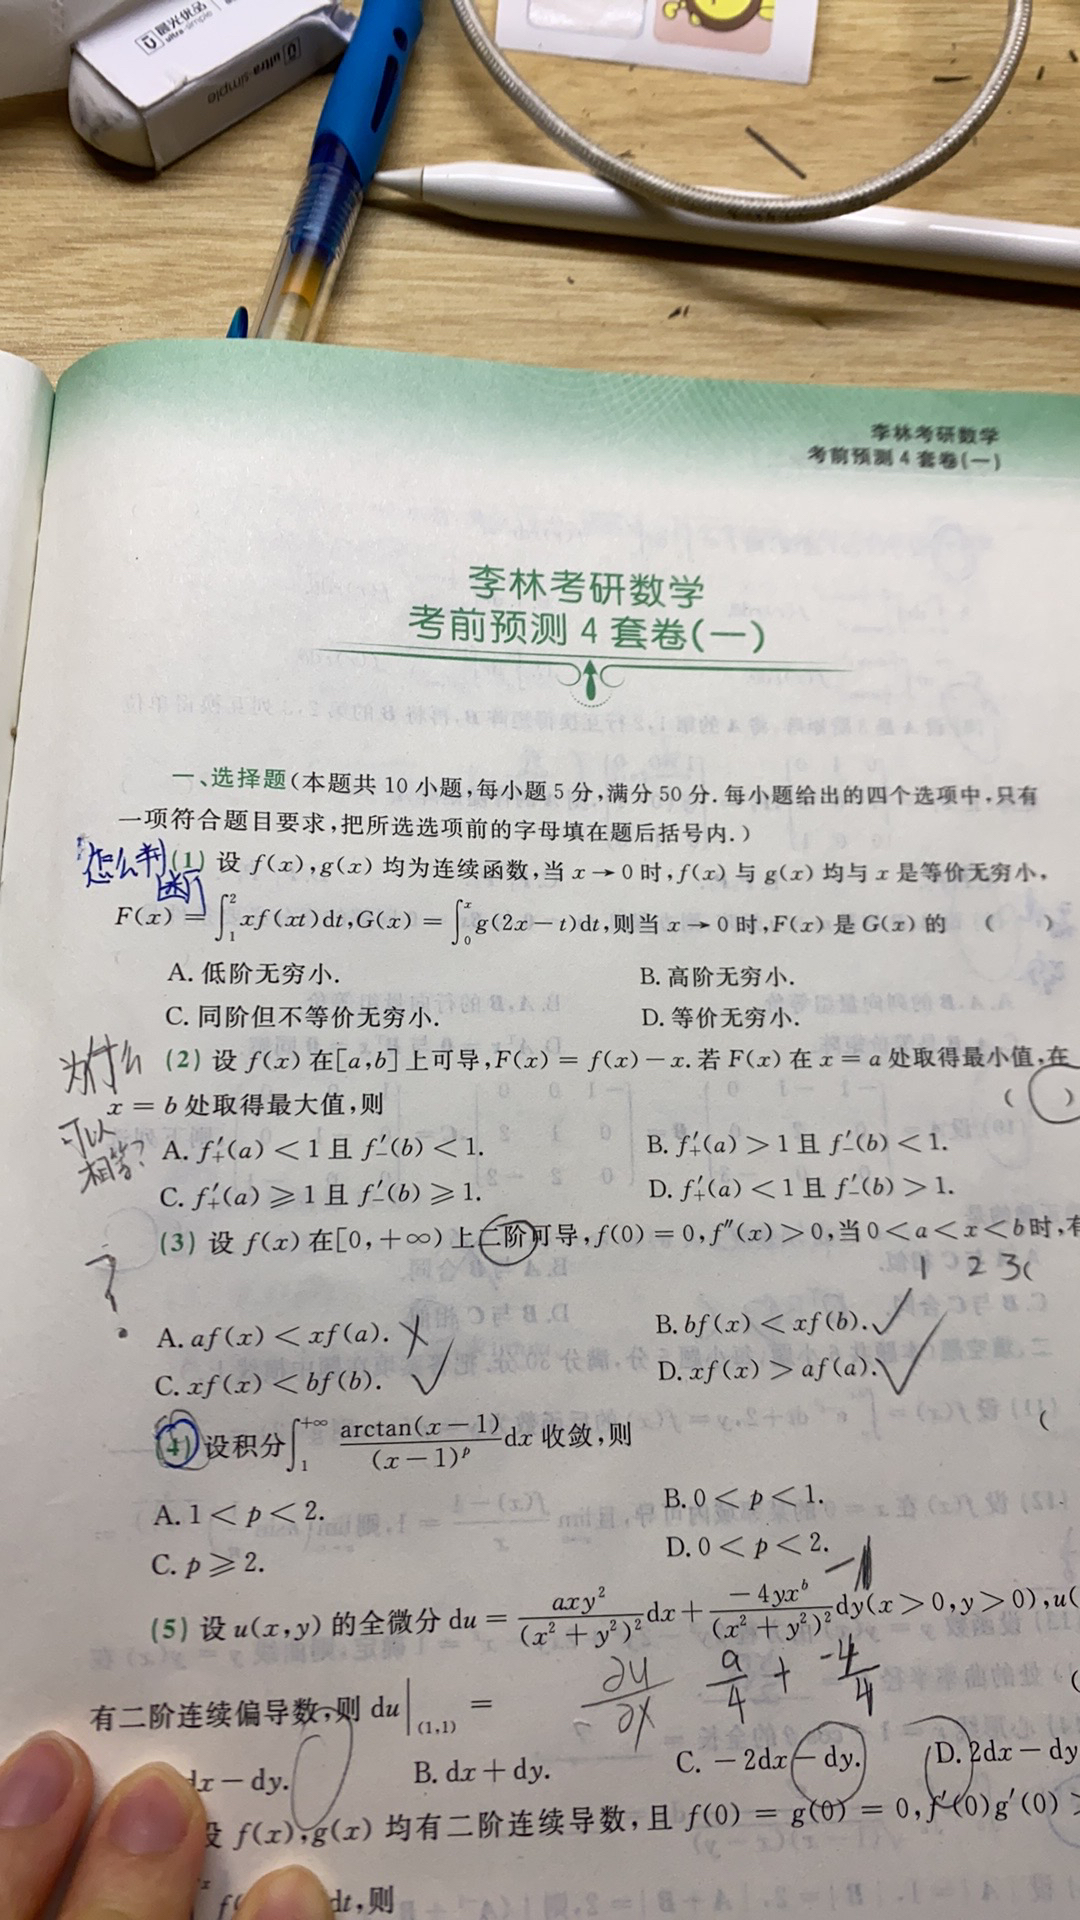 晨光优品
ultra simple
ultra simple
李林考研数学
考前预测 4 套卷(一)
李林考研数学
考前预测 4 套卷(一)
一、选择题(本题共 10 小题,每小题 5 分,满分 50 分. 每小题给出的四个选项中,只有
一项符合题目要求,把所选选项前的字母填在题后括号内.)
怎么判断
(1) 设 f(x),g(x) 均为连续函数,当 x→0 时,f(x) 与 g(x) 均与 x 是等价无穷小,
F(x) = ∫₁² xf(xt)dt,G(x) = ∫₀ˣ g(2x−t)dt,则当 x→0 时,F(x) 是 G(x) 的 (   )
A. 低阶无穷小. B. 高阶无穷小.
C. 同阶但不等价无穷小. D. 等价无穷小.
为什么可以相等?
(2) 设 f(x) 在[a,b]上可导,F(x) = f(x)−x. 若 F(x) 在 x = a 处取得最小值,在
x = b 处取得最大值,则 (   )
A. f′₊(a)<1 且 f′₋(b)<1. B. f′₊(a)>1 且 f′₋(b)<1.
C. f′₊(a)⩾1 且 f′₋(b)⩾1. D. f′₊(a)<1 且 f′₋(b)>1.
?
(3) 设 f(x) 在[0,+∞)上二阶可导,f(0) = 0,f″(x)>0,当 0<a<x<b 时,有
1 2 3
A. af(x)<xf(a). B. bf(x)<xf(b).
C. xf(x)<bf(b). D. xf(x)>af(a).
(4) 设积分∫₁^{+∞} arctan(x−1)/(x−1)ᵖ dx 收敛,则 (
A. 1<p<2. B. 0<p<1.
C. p⩾2. D. 0<p<2.
(5) 设 u(x,y) 的全微分 du = axy²/(x²+y²)² dx + −4yxᵇ/(x²+y²)² dy(x>0,y>0),u(
∂u/∂x a/4 + −4/4
有二阶连续偏导数,则 du|₍₁,₁₎ = (
dx−dy. B. dx+dy. C. −2dx−dy. D. 2dx−dy
设 f(x),g(x) 均有二阶连续导数,且 f(0) = g(0) = 0,f′(0)g′(0)>
dt,则